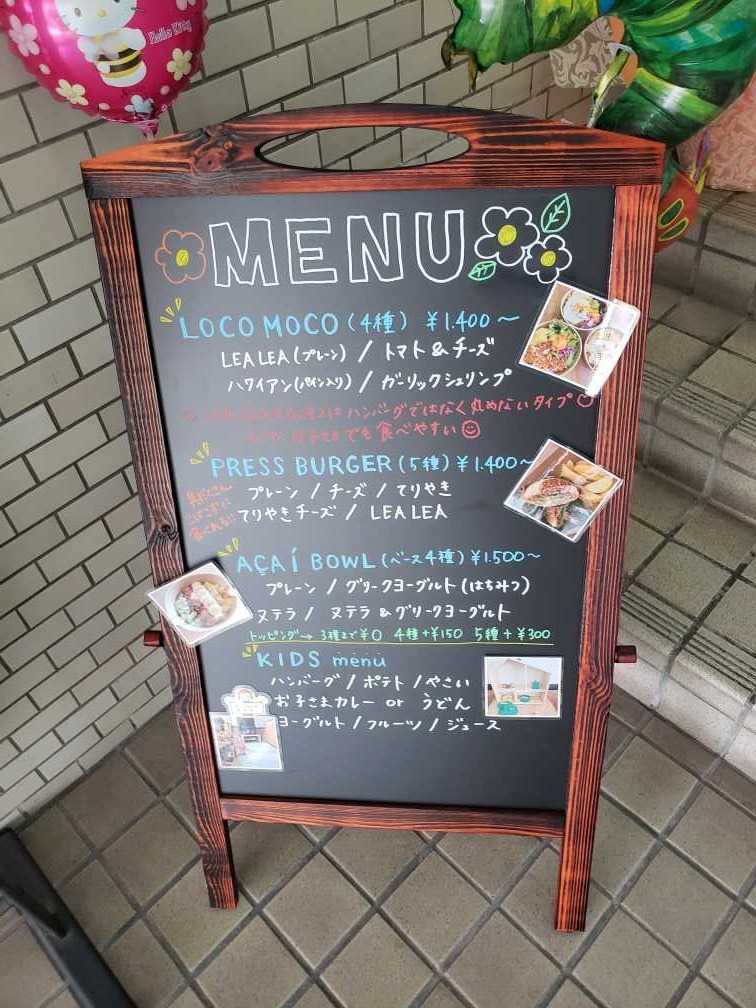 Hello Kitty
MENU
LOCO MOCO (4種) ¥1.400〜
LEA LEA (プレーン) / トマト&チーズ
ハワイアン(パイン入り) / ガーリックシュリンプ
はハンバーグではなく丸めないタイプ
でも食べやすい
PRESS BURGER (5種) ¥1.400〜
プレーン / チーズ / てりやき
てりやきチーズ / LEA LEA
AÇAÍ BOWL (ベース4種) ¥1.500〜
プレーン / グリークヨーグルト(はちみつ)
ヌテラ / ヌテラ&グリークヨーグルト
トッピング→ 3種まで¥0 4種+¥150 5種+¥300
KIDS menu
ハンバーグ / ポテト / やさい
お子さまカレー or うどん
ヨーグルト / フルーツ / ジュース